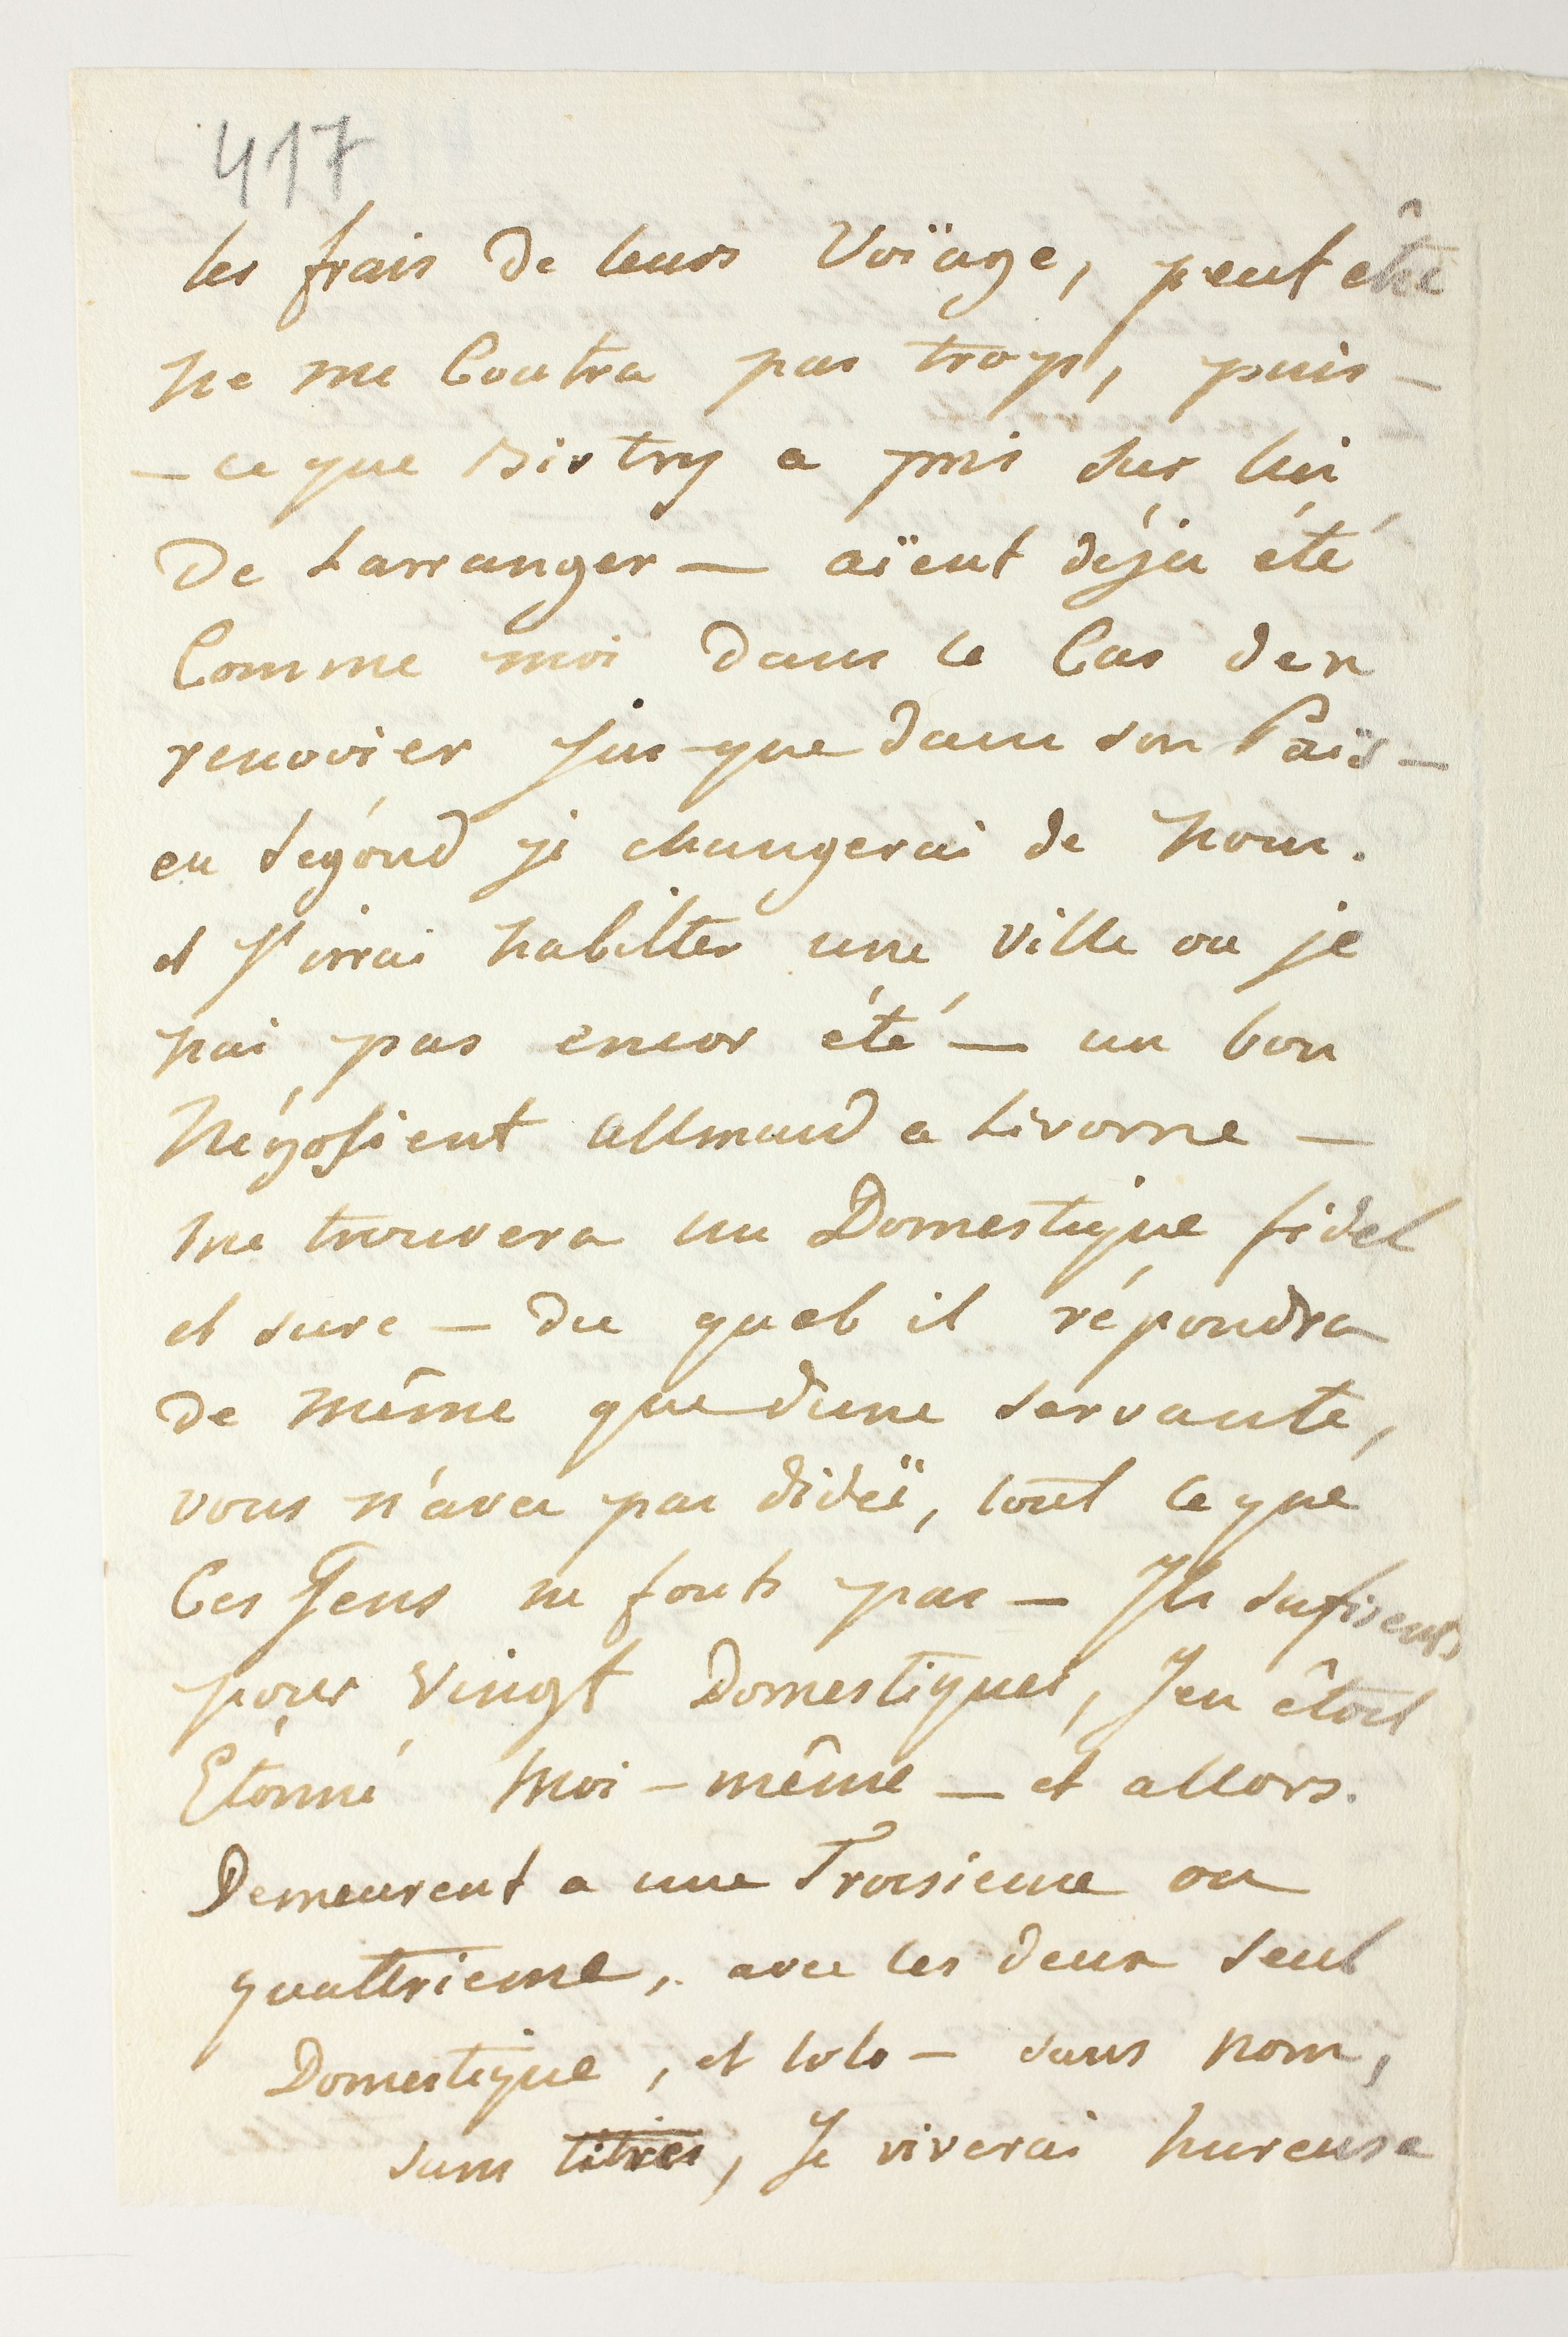 417
les frais de leurs Voïage, peut être
ne me Coutra pas trop, puis –
– ce que Bistry a pris sur lui
De Larranger – aïent déja été
Comme moi dans le Cas den
renvoier jus que dans son Païs –
en Ségond je changerai de nom.
et J'irrai habilter une ville ou je
nai pas encor été – un bon
Négosient allmand a Livorne –
me trouvera un Domestique fidel
et sure – du quel il répondra
de même que dune servante,
vous n'avez pas didéï, tout ce que
Ces Gens ne fonts pas – Ils sufisents
pour Vingt Domestiques, J'en êtoit
Etonné moi – même – et allors.
Demeurent a une Troisieme ou
quattrieme, avec les deux seul
Domestique, et lolo – sans nom,
sans titres, Je viverai hureuse